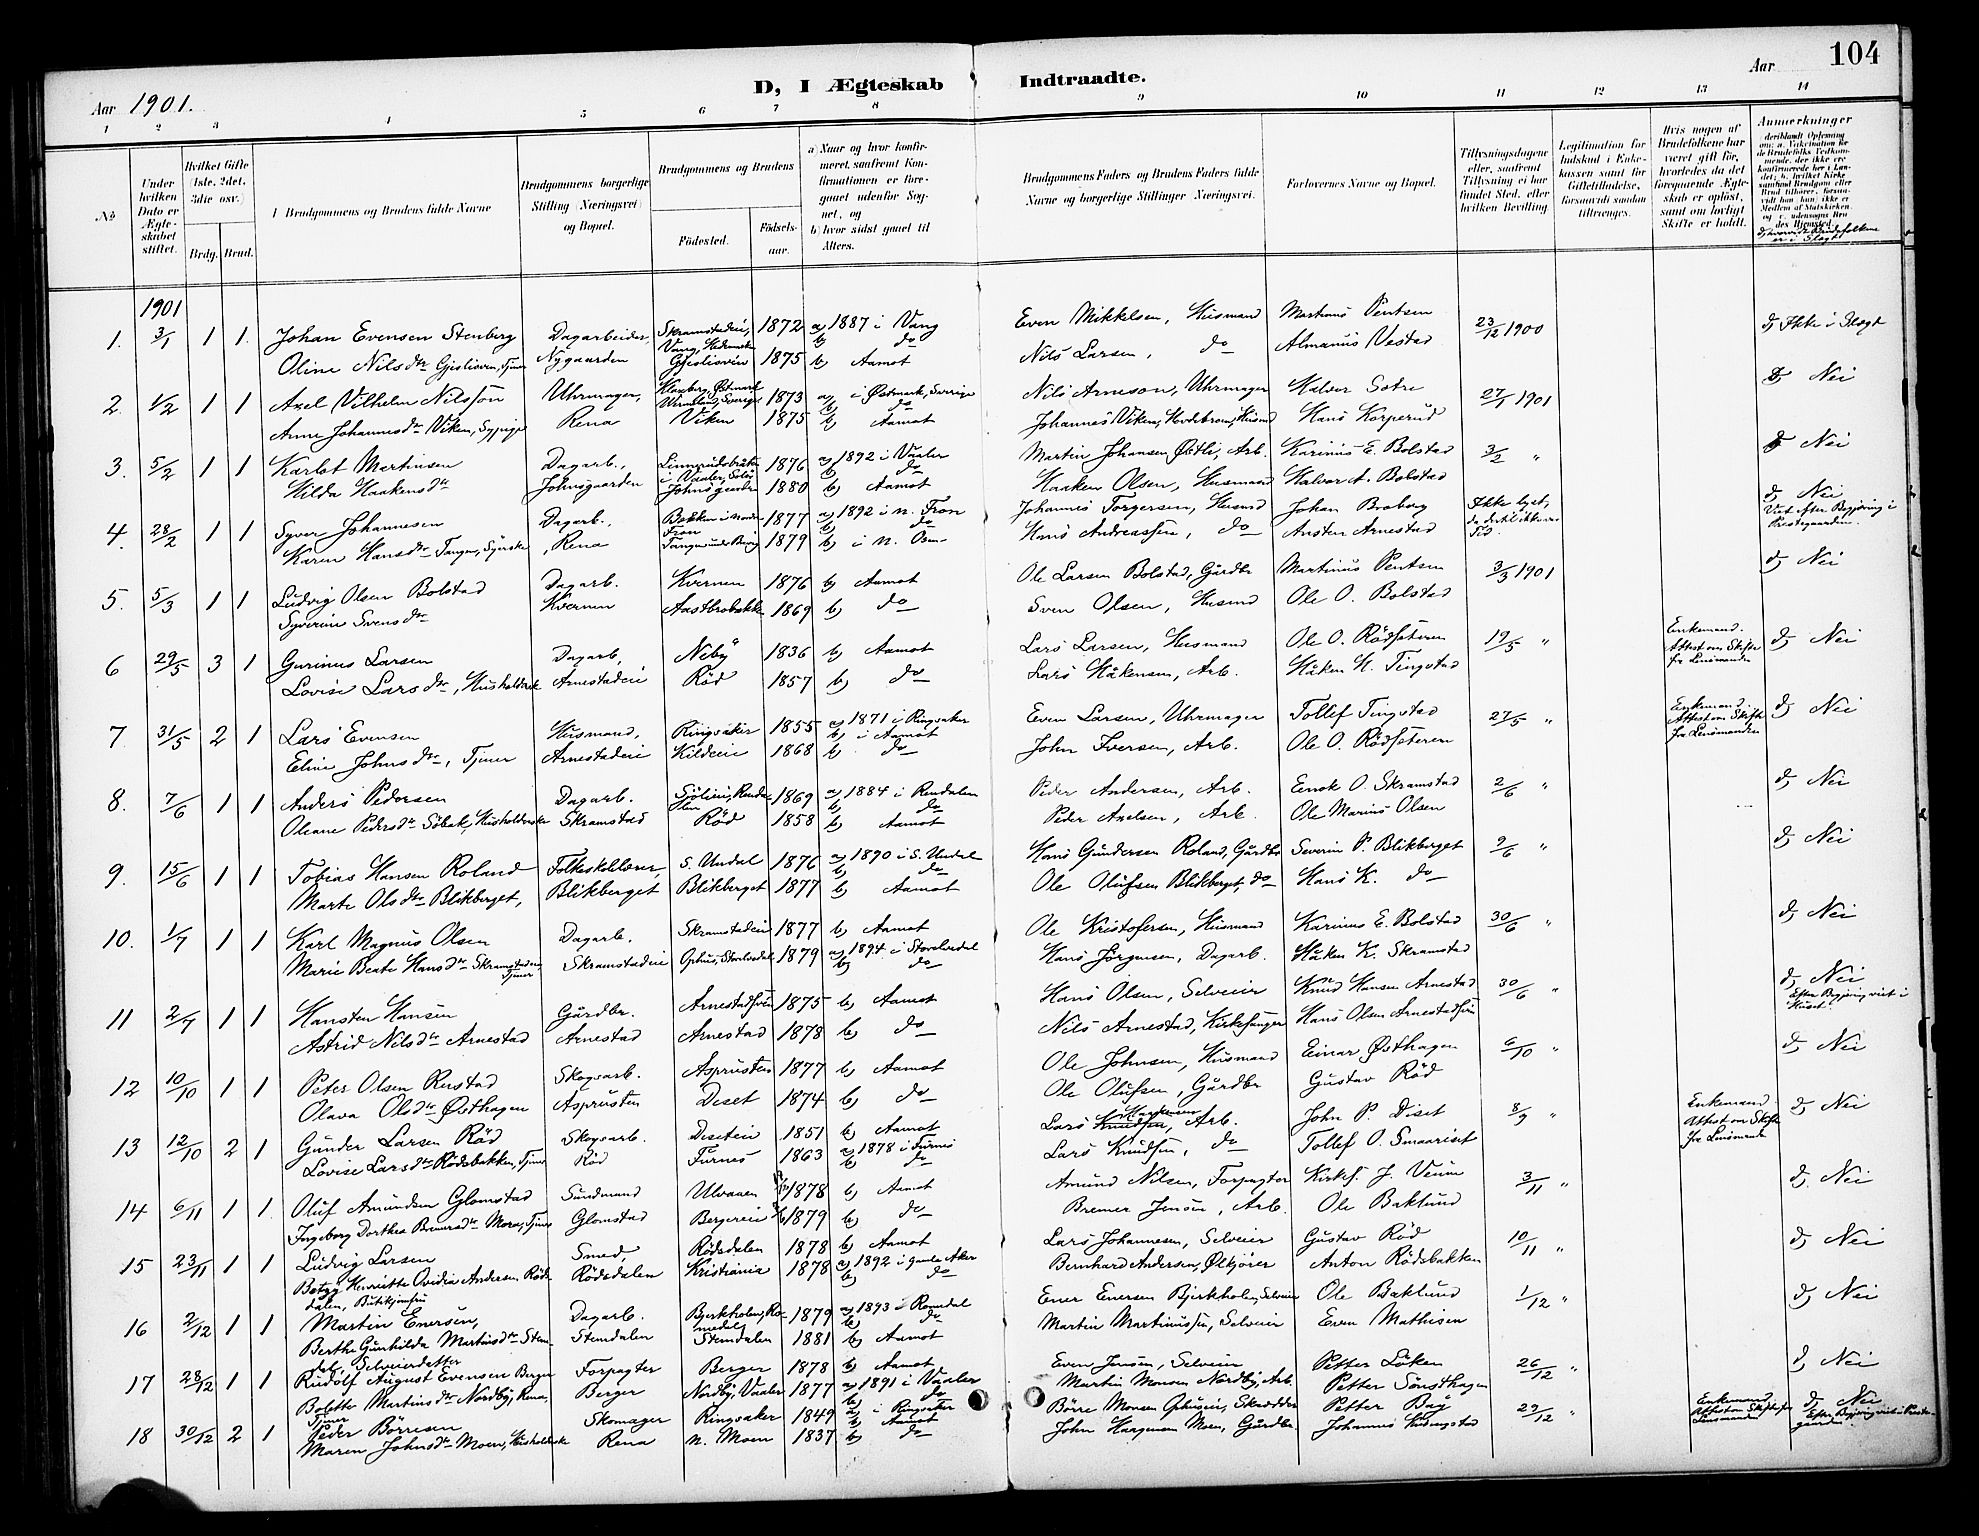 104
D, I Ægteskab Indtraadte.
Aar 1901. Aar
1 2 3 4 5 6 7 8 9 10 11 12 13 14
№
Under hvilken Dato er Ægteskabet stiftet.
Hvilket Gifte (1ste, 2det, 3die osv.)
Brdg. Brud.
Brudgommens og Brudens fulde Navne
Brudgommens borgerlige Stilling (Næringsvei) og Bopæl.
Brudgommens og Brudens
Fødested. Fødselsaar.
a) Naar og hvor konfirmeret, saafremt Konfirmationen er foregaaet udenfor Sognet, og
b) hvor sidst gaaet til Alters.
Brudgommens Faders og Brudens Faders fulde Navne og borgerlige Stillinger (Næringsvei).
Forlovernes Navne og Bopæl.
Tillysningsdagene eller, saafremt Tillysning ei har fundet Sted, efter hvilken Bevilling
Legitimation for Indskud i Enkekassen samt for Giftetilladelse, forsaavidt saadan tiltrænges.
Hvis nogen af Brudefolkene har været gift før, hvorledes da det foregaaende Ægteskab er opløst, samt om lovligt Skifte er holdt.
Anmærkninger
1901
1. 3/1 1 1. Johan Evensen Stenberg Dagarbeider, Skramstadeie, Vang, Hedemarken 1872 a) 1887 i Vang b) do Even Mikkelsen, Husmand Martinus Pentsen 23/12 1900 d) Ikke i Slægt
Oline Nilsdtr Gjeslioveien, Tjener Nygaarden Gjeslioveien 1875 b) Aamot Nils Larsen, do Almanus Vestad
2. 1/2 1 1 Axel Vilhelm Nilsson Uhrmager, 1873 a) i Østmark, Sverige b) do Nils Arneson, Uhrmager Halvor Sotre 27/1 1901 d) Nei
Anne Johannesdtr Viken, Sypige Rena Viken 1875 b) Aamot Johannes Viken, Husmd Hans Korperud
3. 5/2 1 1 Karlot Martinsen Dagarb., i Vaaler, Solør 1876 a) 1892 i Vaaler b) do Martin Johansen Østli, Arb. Karinus E. Bolstad 3/2 " d) Nei
Hilda Haakensdtr Johnsgaarden Johnsgaarden 1880 b) Aamot Haaken Olsen, Husmand Halvor A. Bolstad
4. 28/2 1 1 Syver Johannesen Dagarb., Bakken i Nordre Fron 1877 a) 1892 i N. Fron b) do Johannes Torgersen, Husmd Johan Broberg Ikke lyst, da dertil ikke var Tid. d) Nei Viet efter Begjæring i Præstegaarden.
Karen Hansdtr Tangen, Syerske, Rena 1879 b) i N. Osen Hans Andreassen, do Austen Arnestad
5. 5/3 1 1 Ludvig Olsen Bolstad Dagarb. Kvernen 1876 b) Aamot Ole Larsen Bolstad, Gårdbr Martinus Pentsen 3/3 1901 d) Nei
Syverine Svensdtr Kvernen Aastbrobakke 1869 b) do Sven Olsen, Husmd Ole O. Bolstad
6 29/5 3 1 Gurinus Larsen Dagarb, Neby 1836 b) Aamot Lars Larsen, Husmand Ole O. Rødseteren 19/5 " Enkemand. Attest om Skifte fra Lensmanden d) Nei
Lovise Larsdtr, Husholderske Arnestadeie Rød 1857 b) do Lars Håkensen, Arb. Håken H. Tingstad
7. 31/5 2 1 Lars Evensen Husmand, Ringsaker 1855 a) 1871 i Ringsaker b) i Aamot Even Larsen, Uhrmager Tollef Tingstad 27/5 " Enkemand. Attest om Skifte fra Lensmanden d) Nei
Eline Johnsdtr, Tjener Arnestadeie Kildeeie 1868 b) do John Iversen, Arb. Ole O. Rødseteren
8. 7/6 1 1 Anders Pedersen Dagarb. Sølien, Rendalen 1869 a) 1884 i Rendalen b) do Peder Andersen, Arb. Enok O. Skramstad 2/6 " d) Nei
Oleane Pedersdtr Søbak, Husholderske Skramstad Rød 1858 b) Aamot Peder Axelsen, Arb. Ole Marius Olsen
9. 15/6 1 1 Tobias Hansen Roland Folkeskolelærer, S. Undal 1876 a) 1890 i S. Undal b) do Hans Gundersen Roland, Gårdbr Severin P. Blikberget 9/6 " d) Nei
Marte Olsdtr Blikberget, Blikberget Blikberget 1877 b) Aamot Ole Olufsen Blikberget, do Hans K. do
10. 1/7 1 1 Karl Magnus Olsen Dagarb. Skramstadeie 1877 b) Aamot Ole Kristofersen, Husmand Karinus E. Bolstad 30/6 " d) Nei
Marie Beate Hansdtr Skramstadeie, Tjener Skramstadeie Ophus, Storelvedal 1879 a) 1894 i Storelvedal b) do Hans Jørgensen, Dagarb. Håken K. Skramstad
11 2/7 1 1 Hansten Hansen Gårdbr. Arnestadsveen 1875 b) Aamot Hans Olsen, Selveier Knud Hansen Arnestad 30/6 " d) Nei Efter Begjæring viet i Huset.
Astrid Nilsdtr Arnestad Arnestad Arnestad 1878 b) do Nils Arnestad, Kirkesanger Hans Olsen Arnestadsveen
12 10/10 1 1 Peter Olsen Rustad Skogsarb. Asprusten 1877 b) Aamot Ole Johnsen, Husmand Einar Østhagen 6/10 " d) Nei
Olava Olsdtr Østhagen Asprusten Deset 1874 b) do Ole Olufsen, Gårdbr Gustav Rød
13 12/10 2 1 Gunder Larsen Rød Skogsarb. Deseteie 1851 b) Aamot Lars Knudsen, Arb. John P. Diset 8/9 " Enkemand Attest om Skifte fra Lensmanden d) Nei
Lovise Larsdtr Rødsbakken, Tjener Rød Furnes 1863 a) 1878 i Furnes b) do Lars Knudsen, do Tollef O. Smaariset
14 6/11 1 1 Oluf Amundsen Glomstad Sundmand Ulvaaen 1878 b) Aamot Amund Nilsen, Forpagter Kirkes. J. Veum 3/11 " d) Nei
Ingeborg Dorthea Bremersdtr Mora, Tjener Glomstad Bergereie 1879 b) do Bremer Jensen, Arb. Ole Baklund
15 23/11 1 1 Ludvig Larsen Smed, Rødsdalen 1878 b) Aamot Lars Johannesen, Selveier Gustav Rød 10/11 " d) Nei
Betzy Henriette Ovidia Andersen, Rødsdalen, Butikjomfru Rødsdalen Kristiania 1878 a) 1892 i gamle Aker b) do Bernhard Andersen, Ølkjører Anton Rødsbakken
16 2/12 1 1 Martin Enersen, Dagarb. Bjerkholen, Romedal 1879 a) 1893 i Romedal b) do Ener Enersen Bjerkholen, Selveier Ole Baklund 1/12 " d) Nei
Berthe Gunhilda Martinsdtr Stemdal, Selveierdatter Stemdalen Stemdalen 1881 b) Aamot Martin Martinussen, Selveier Even Mathisen
17 28/12 1 1 Rudolf August Evensen Berger Forpagter Berger 1878 b) Aamot Even Jensen, Selveier Petter Løken 26/12 " d) Nei
Bolette Martinsdtr Nordby, Rena, Tjener Berger Nordby, Vaaler 1877 a) 1891 i Vaaler b) do Martin Monsen Nordby, Arb. Petter Sønsthagen
18 30/12 2 1 Peder Børresen Skomager Ringsaker 1849 a) i Ringsaker b) Aamot Børre Monsen, Skrædder Petter Bay 29/12 " Enkemand. Attest om Skifte fra Lensmanden d) Nei
Maren Johnsdtr Moen, Husholderske Rena N. Moen 1837 b) do John Haagensen Moen, Gårdbr. Johannes